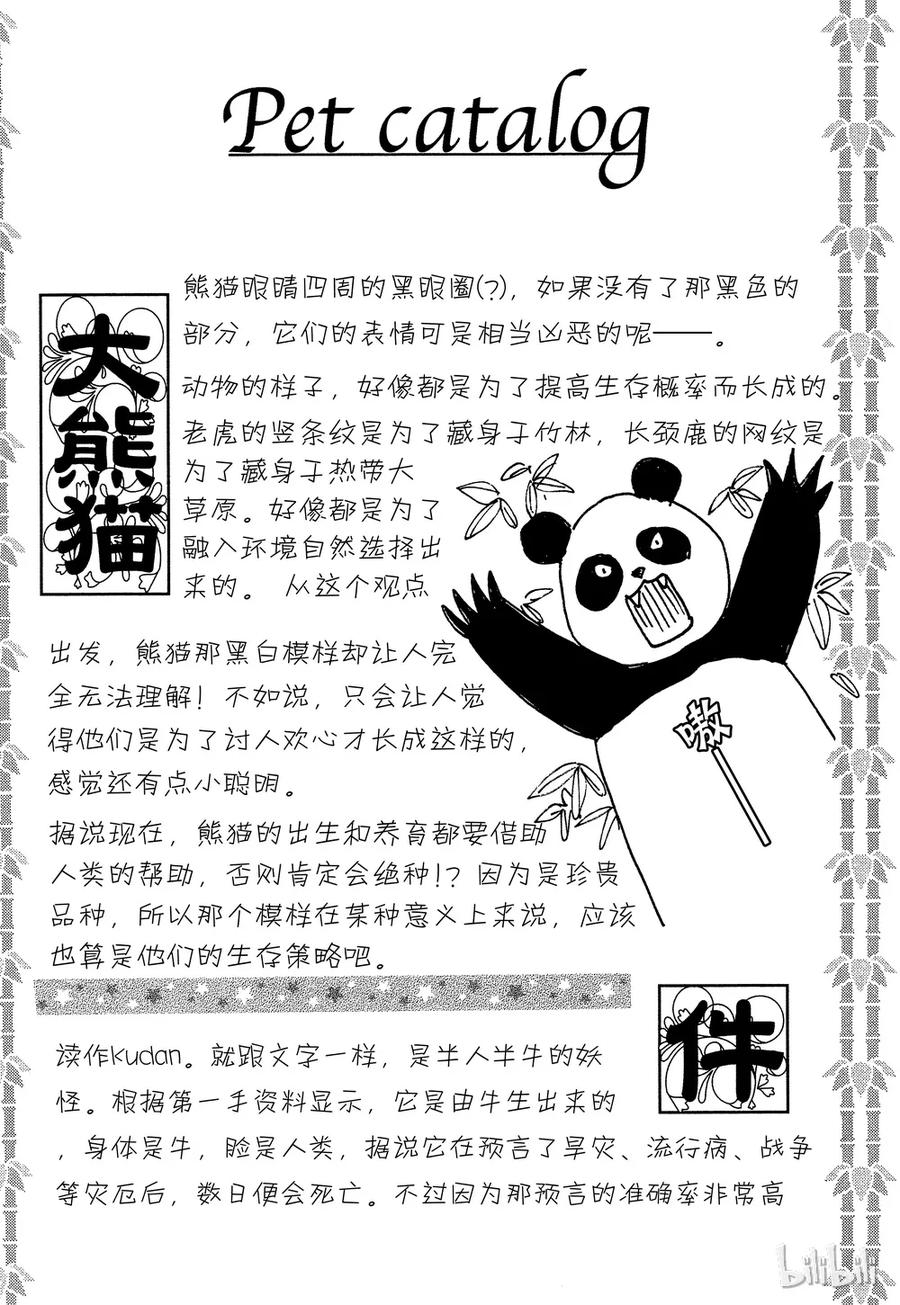 Pet catalog
大熊猫
熊猫眼睛四周的黑眼圈(?)，如果没有了那黑色的
部分，它们的表情可是相当凶恶的呢——。
动物的样子，好像都是为了提高生存概率而长成的。
老虎的竖条纹是为了藏身于竹林，长颈鹿的网纹是
为了藏身于热带大
草原。好像都是为了
融入环境自然选择出
来的。 从这个观点
出发，熊猫那黑白模样却让人完
全无法理解！不如说，只会让人觉
得他们是为了讨人欢心才长成这样的，
感觉还有点小聪明。
嗷
据说现在，熊猫的出生和养育都要借助
人类的帮助，否则肯定会绝种!？因为是珍贵
品种，所以那个模样在某种意义上来说，应该
也算是他们的生存策略吧。
件
读作Kudan。就跟文字一样，是半人半牛的妖
怪。根据第一手资料显示，它是由牛生出来的
，身体是牛，脸是人类，据说它在预言了旱灾、流行病、战争
等灾厄后，数日便会死亡。不过因为那预言的准确率非常高
bilibili